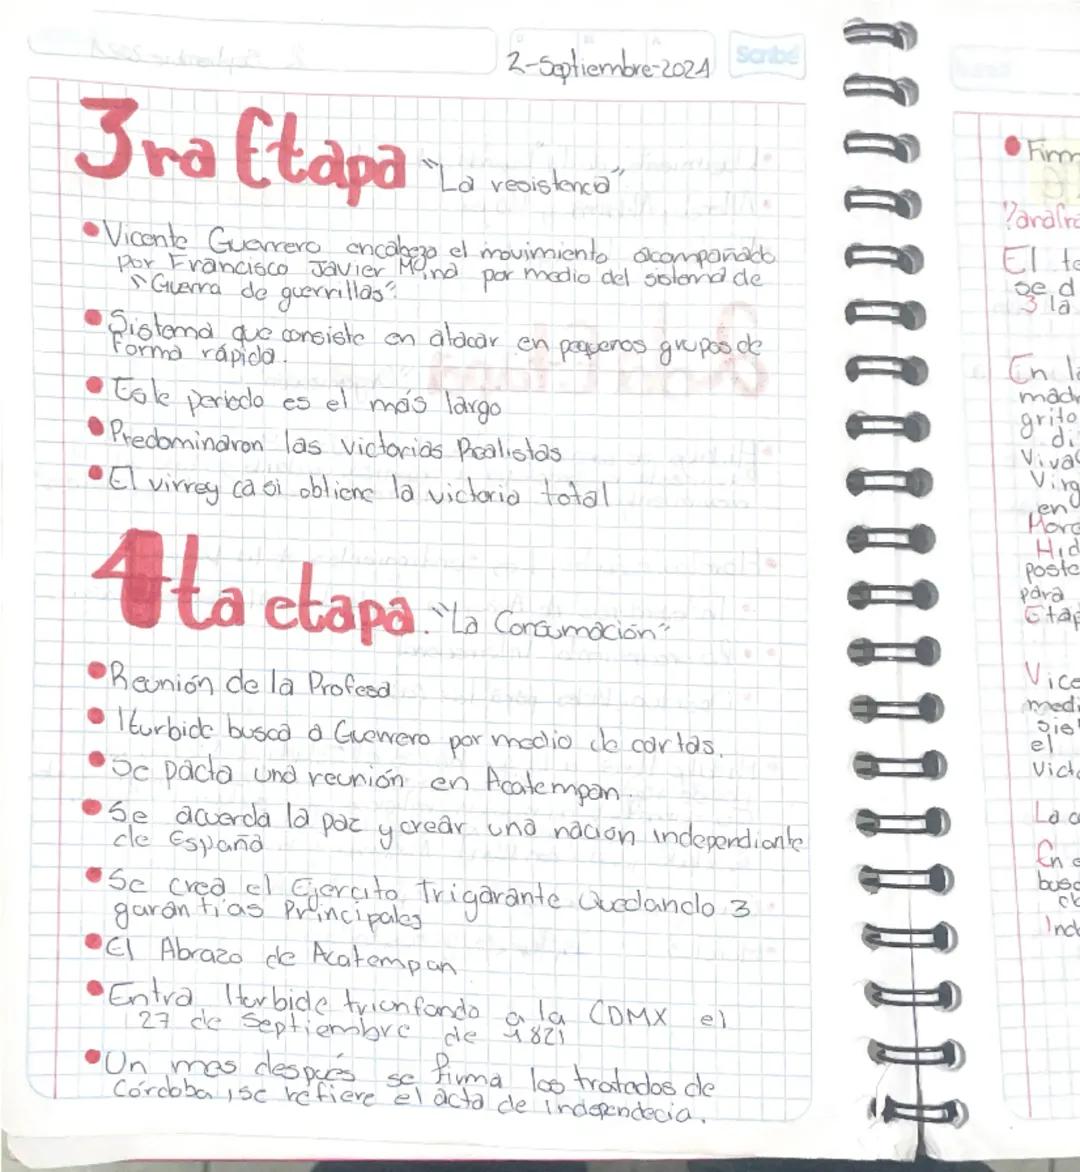 2-Septiembre-2024
Scribe
3ra Etapa "La resistencia"
• Vicente Guerrero encabeza el movimiento acompañado
por Francisco Javier Mina por medio del sistema de
"Guerra de guerrillas".
• Sistema que consiste en atacar en pequeños grupos de
forma rápida.
• Este periodo es el más largo
• Predominaron las victorias Realistas
• El virrey casi obtiene la victoria total
4ta etapa. "La Consumación"
• Reunión de la Profesa
• Iturbide busca a Guerrero por medio de cartas.
• Se pacta una reunión en Acatempan.
• Se acuerda la paz y crear una nación independiante
de España
• Se crea el Ejercito Trigarante Quedando 3
garantías Principales
• El Abrazo de Acatempan
• Entra Iturbide triunfando a la CDMX el
27 de Septiembre de 1821
• Un mes después se firma los tratados de
Córdoba, se refiere el acta de independecia.
• Firm
El te
se d
3 la
En la
madr
grito
di
Viva
Virg
en
Hid
poste
para
Etap
Vice
medi
Sist
el
Victo
La c
En e
busc
Ind